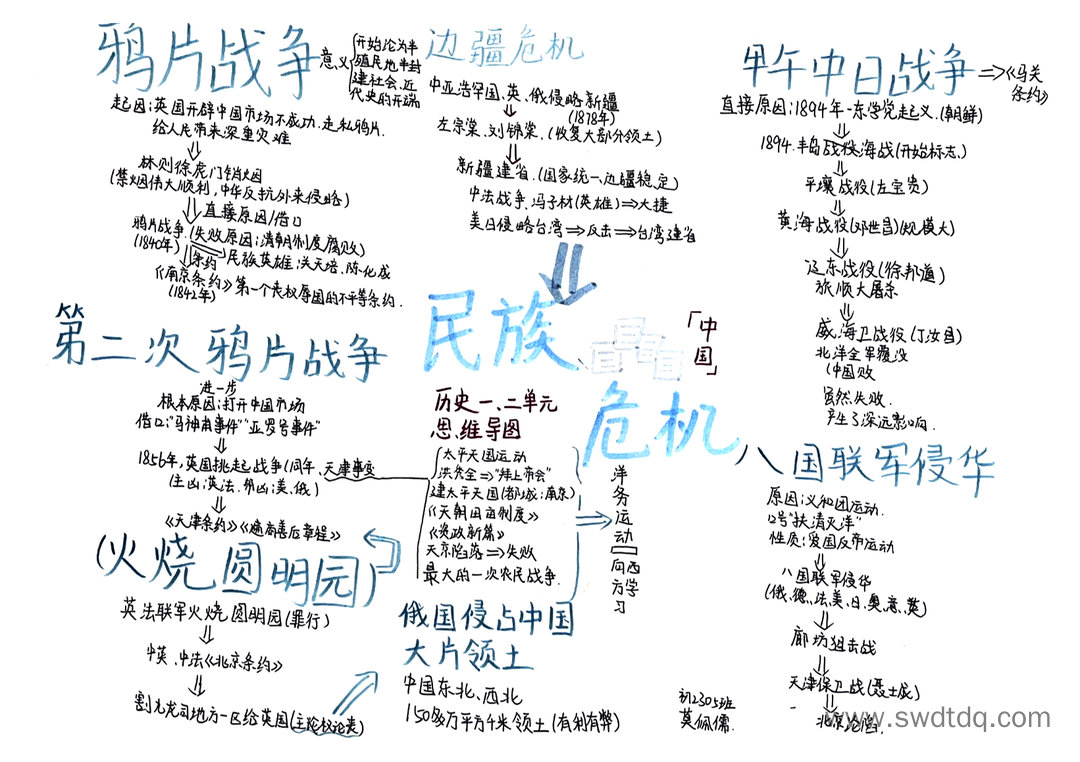 鸦片战争
意义
开始沦为半
殖民地半封
建社会、近
代史的开端
起因:英国开辟中国市场不成功.走私鸦片.
给人民带来深重灾难
林则徐虎门销烟
(禁烟伟大顺利,中华反抗外来侵略)
直接原因/借口
鸦片战争.(失败原因:清朝制度腐败)
(1840年)
条约
民族英雄:关天培、陈化成
《南京条约》第一个丧权辱国的不平等条约.
(1842年)
边疆危机
中亚浩罕国、英、俄侵略新疆
(1878年)
左宗棠、刘锦棠.(收复大部分领土)
新疆建省.(国家统一、边疆稳定)
中法战争、冯子材(英雄)⇒大捷
美日侵略台湾⇒反击⇒台湾建省
甲午中日战争
⇒《马关
条约》
直接原因:1894年-东学党起义.(朝鲜)
1894.丰岛战役海战(开始标志.)
平壤战役(左宝贵)
黄海战役(邓世昌)(规模大)
辽东战役(徐邦道)
旅顺大屠杀
威海卫战役(丁汝昌)
北洋全军覆没
(中国败
虽然失败.
产生了深远影响.
民族
危机
「中国」
历史一、二单元
思维导图
第二次鸦片战争
进一步
根本原因:打开中国市场
借口:"马神甫事件""亚罗号事件"
1856年,英国挑起战争(同年、天津事变
(主凶:英法.帮凶:美、俄)
《天津条约》《通商善后章程》
(火烧圆明园)
英法联军火烧圆明园(罪行)
中英、中法《北京条约》
割九龙司地方一区给英国
太平天国运动
洪秀全⇒"拜上帝会"
建太平天国(都城:南京)
《天朝田亩制度》
《资政新篇》
天京陷落⇒失败
最大的一次农民战争.
洋务运动
向西方学习
俄国侵占中国
大片领土
中国东北、西北
150多万平方千米领土(有利有弊)
八国联军侵华
原因:义和团运动.
口号"扶清灭洋"
性质:爱国反帝运动
八国联军侵华
(俄、德、法、美、日、奥、意、英)
廊坊狙击战
天津保卫战(聂士成)
北京沦陷.
初2305班
莫佩儒.
www.swdtdq.com